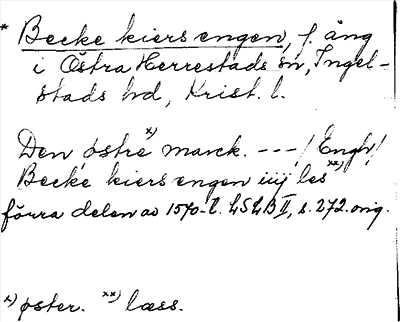 * Becke kiers engen, f. äng
i Östra Herrestads sn, Ingel-
stads hd, Krist. l.
Den østre x) marck. --- / Engh /
Becke kiers engen iiij les xx)
förra delen av 1570-t. LSLB II, s. 272. orig.
x) øster. xx) læss.